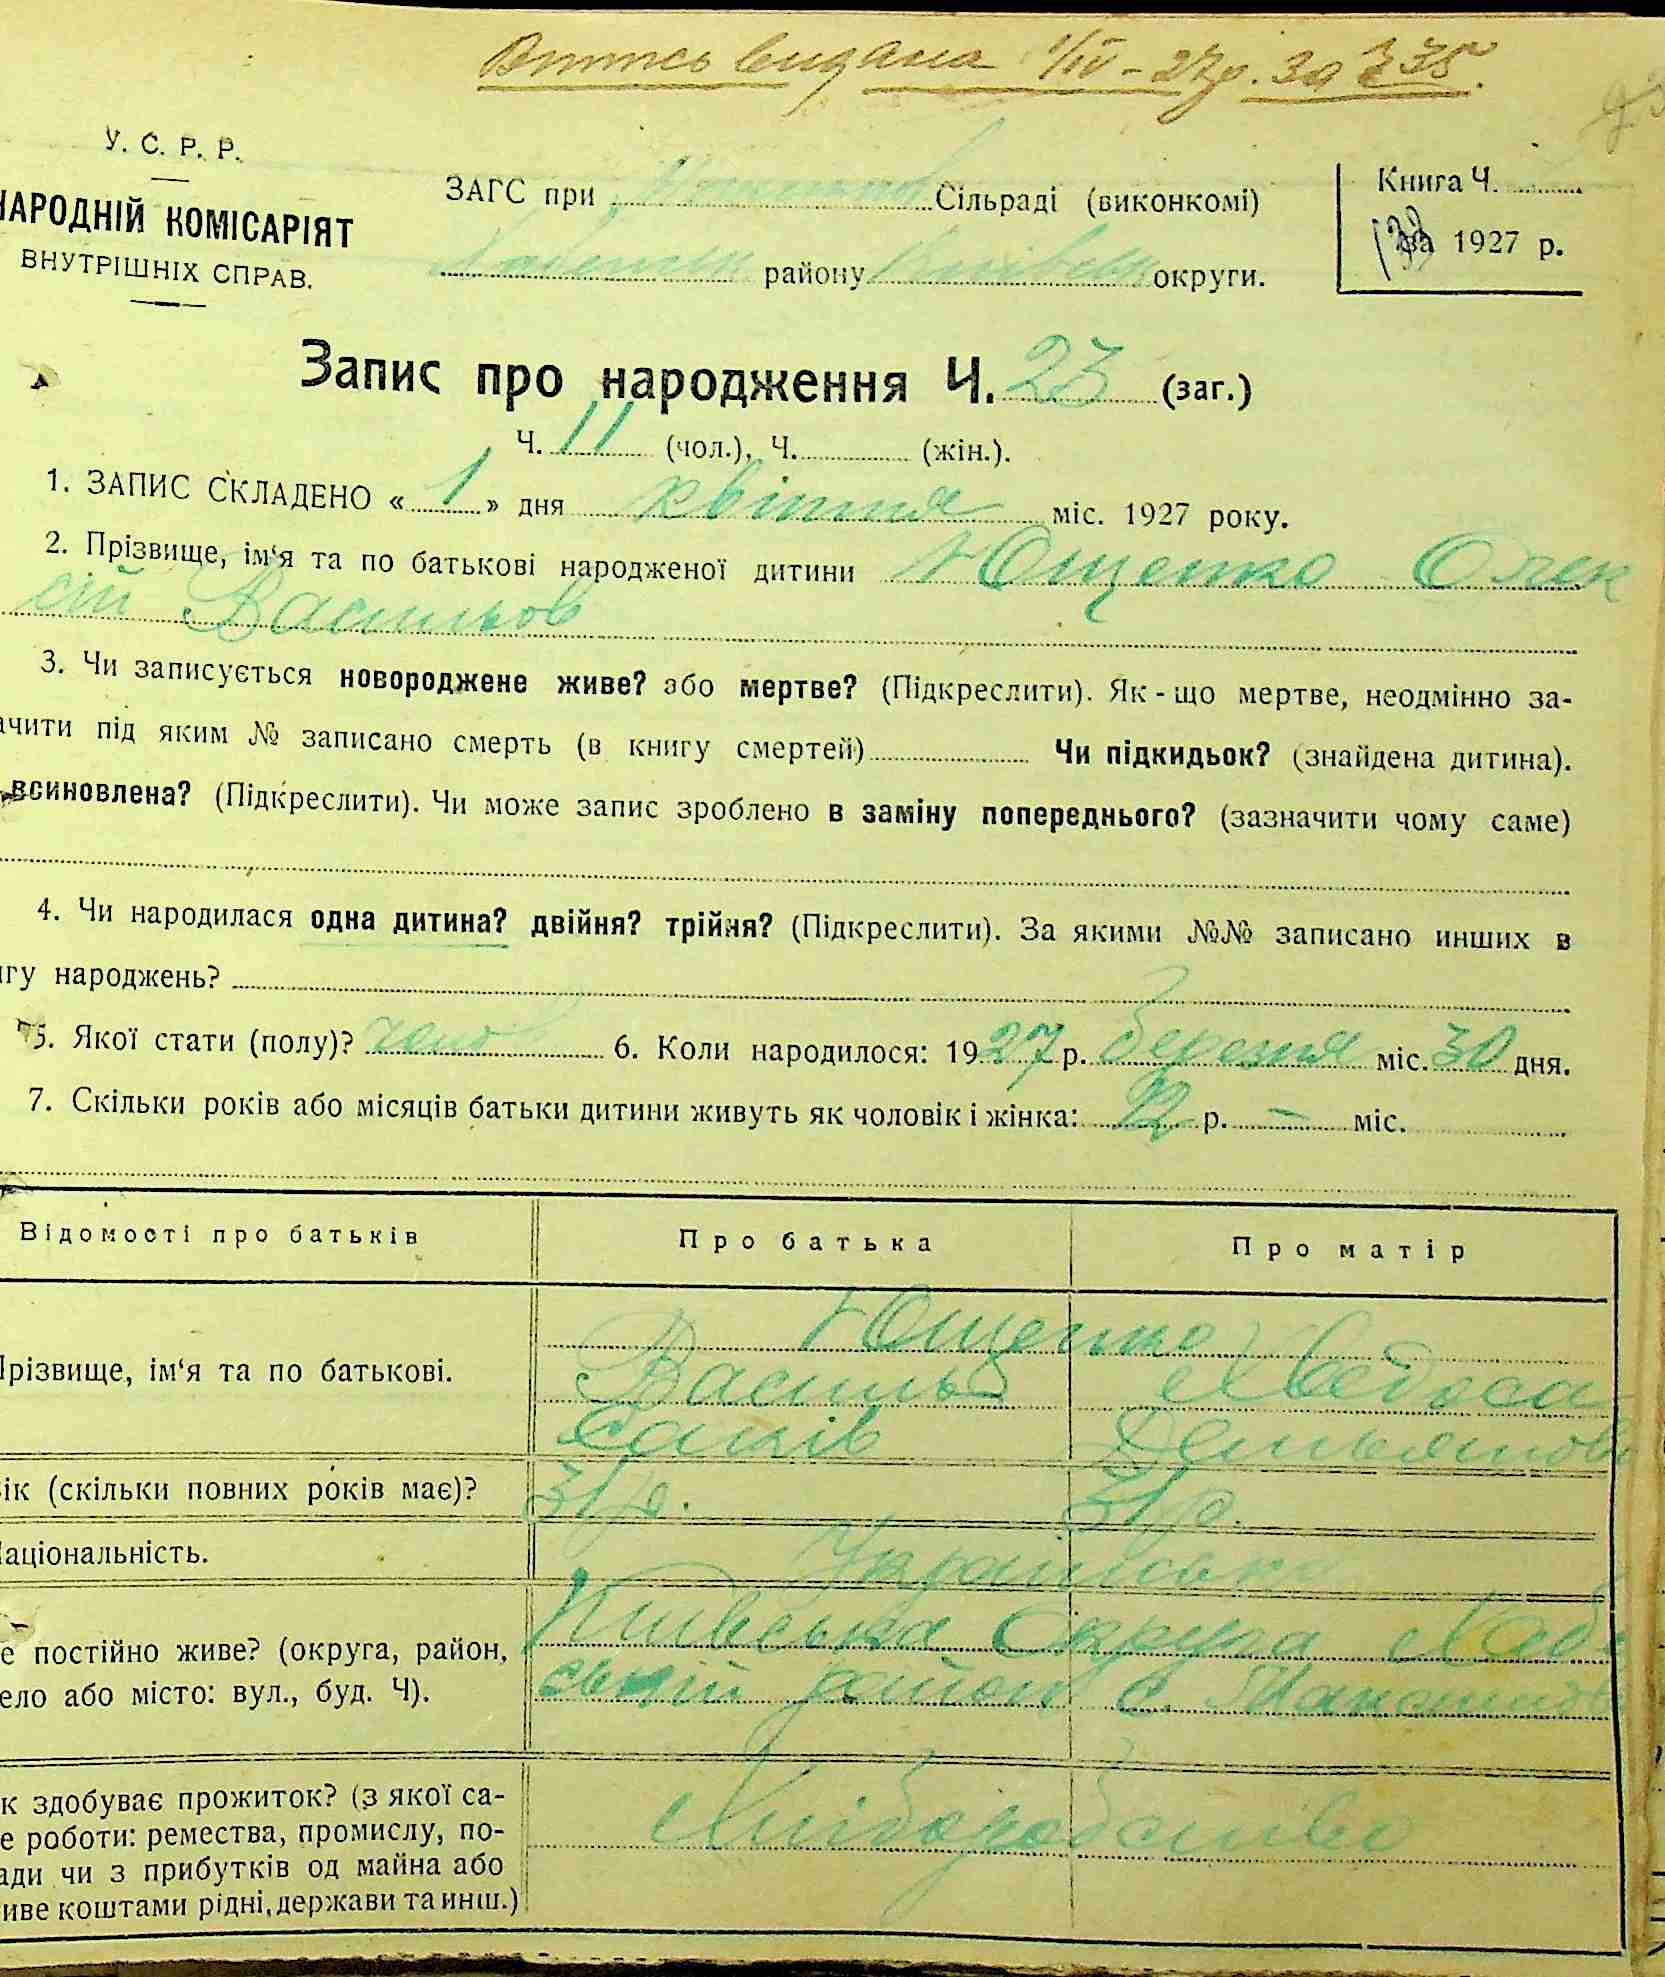 видана 1/IV-27р.
У. С. Р. Р.
НАРОДНІЙ КОМІСАРІЯТ
ВНУТРІШНІХ СПРАВ.
ЗАГС при Сільраді (виконкомі)
району Київськ округи.
Книга Ч.
1927 р.
Запис про народження Ч. 23 (заг.)
Ч. 11 (чол.), Ч. (жін.).
1. ЗАПИС СКЛАДЕНО « 1 » дня квітня міс. 1927 року.
2. Прізвище, ім‘я та по батькові народженої дитини Ющенко Олек
сій Васильов
3. Чи записується новороджене живе? або мертве? (Підкреслити). Як-що мертве, неодмінно за-
ачити під яким № записано смерть (в книгу смертей) Чи підкидьок? (знайдена дитина).
всиновлена? (Підкреслити). Чи може запис зроблено в заміну попереднього? (зазначити чому саме)
4. Чи народилася одна дитина? двійня? трійня? (Підкреслити). За якими №№ записано инших в
игу народжень?
5. Якої стати (полу)? чол 6. Коли народилося: 1927 р. березня міс. 30 дня.
7. Скільки років або місяців батьки дитини живуть як чоловік і жінка: 12 р. – міс.
Відомості про батьків Про батька Про матір
Ющенко
Прізвище, ім‘я та по батькові.
Василь Хведоса
Саків Демьянов
Вік (скільки повних років має)? 31 р. 31 р.
Національність. Українська
Київська Округа
Де постійно живе? (округа, район,
ський район с.
село або місто: вул., буд. Ч).
Як здобуває прожиток? (з якої са-
ме роботи: ремества, промислу, по-
Хліборобство
сади чи з прибутків од майна або
живе коштами рідні, держави та инш.)